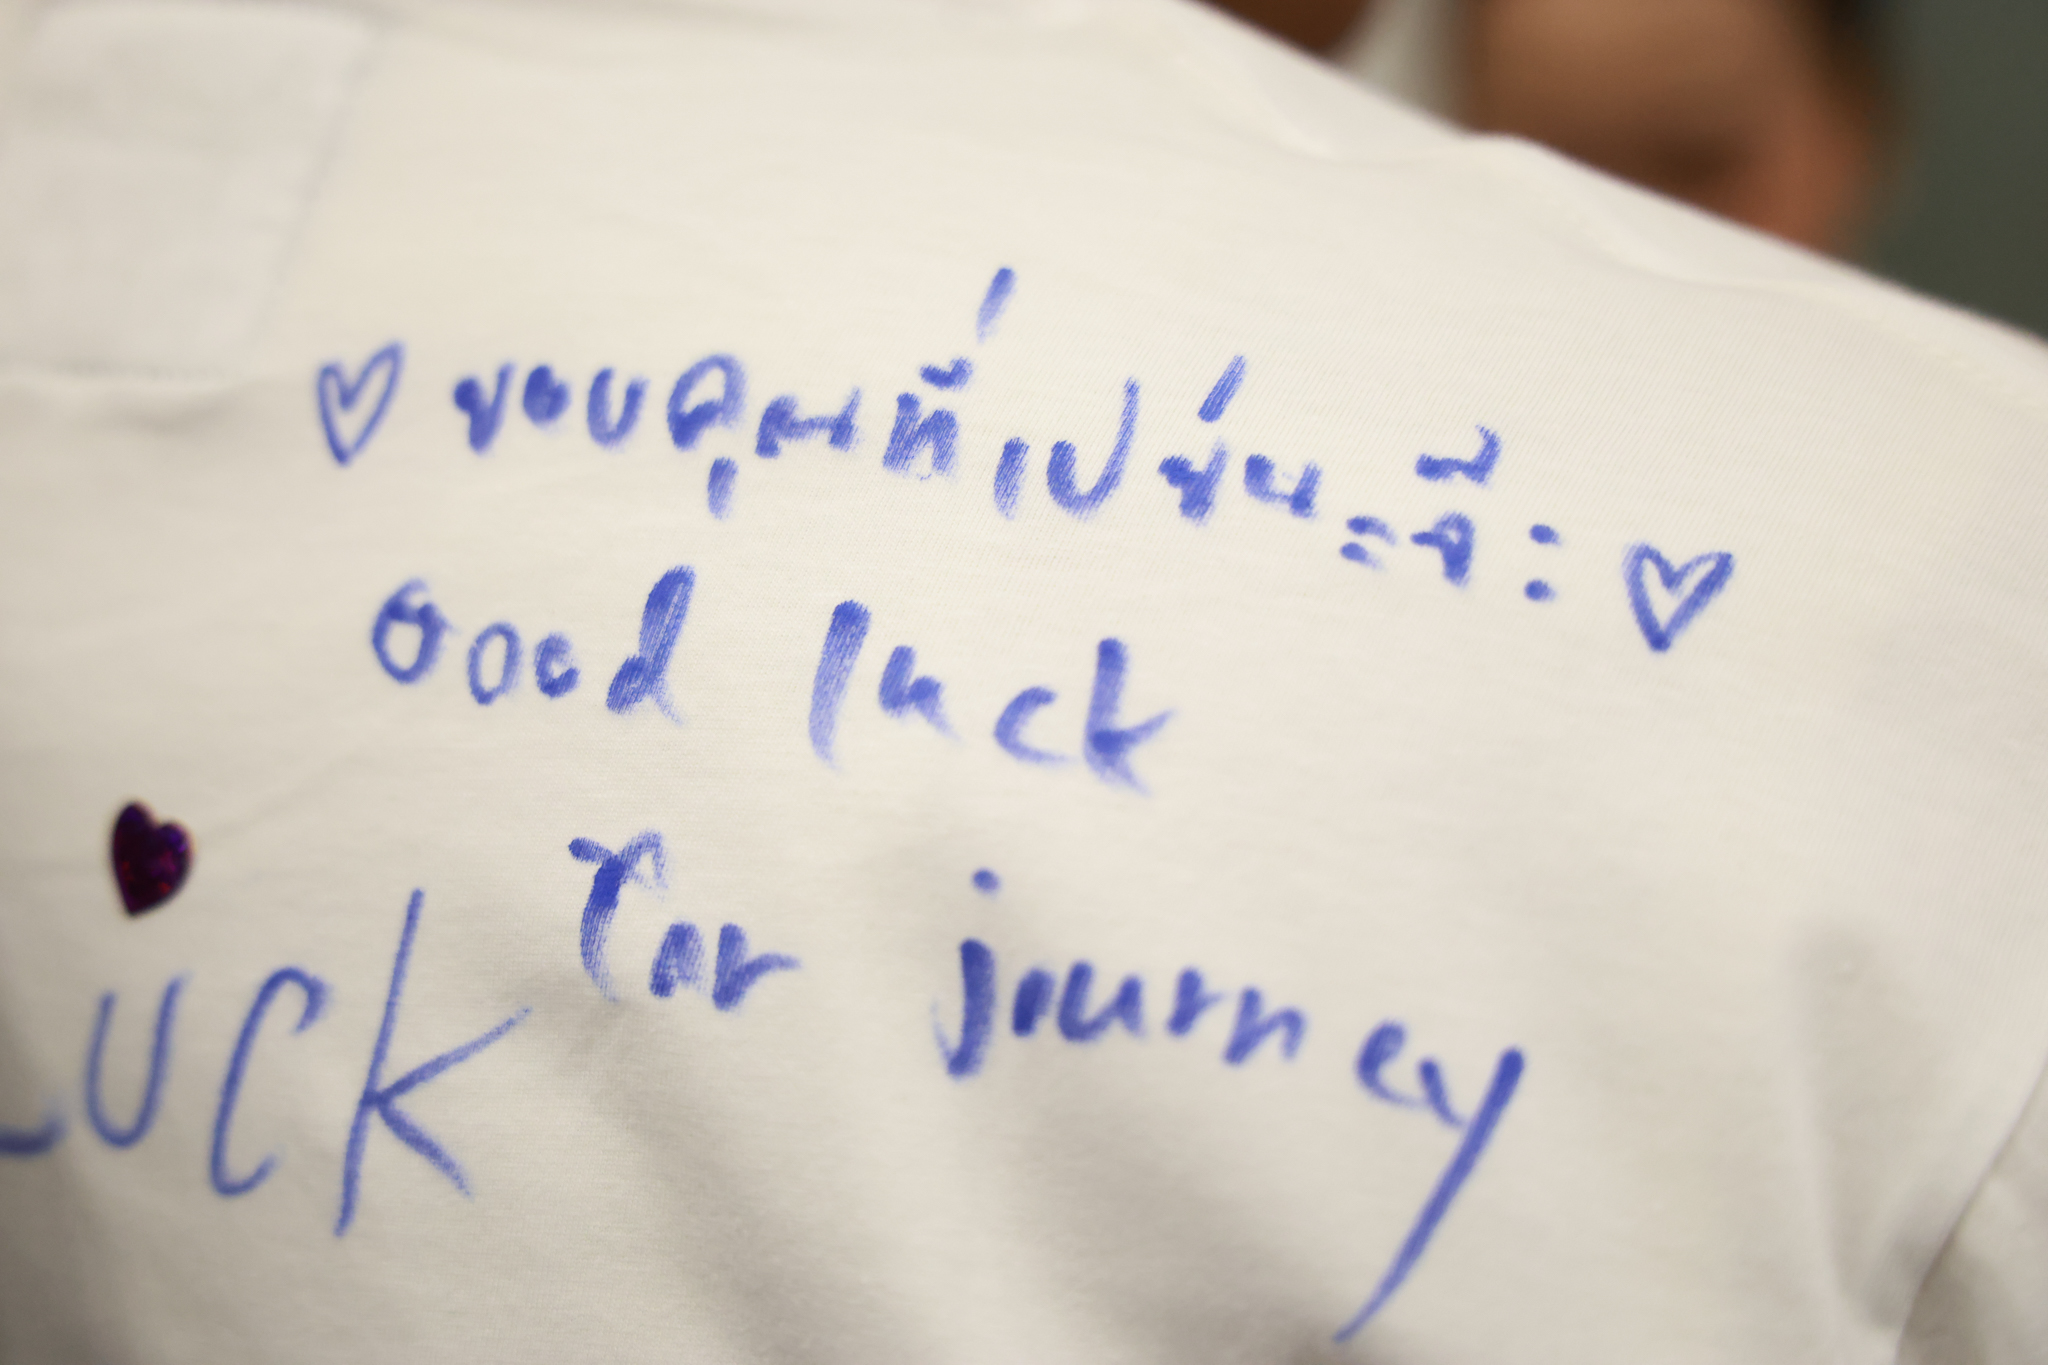 ♡ ขอบคุณที่เปย์นะจี๊ : ♡
Good luck
for journey
LUCK